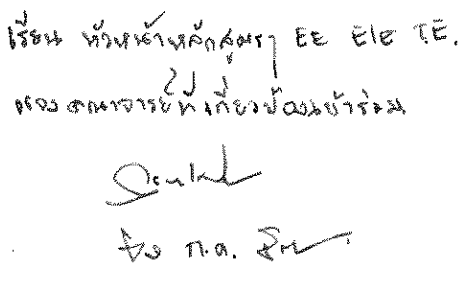 เรียน หัวหน้าหลักสูตรฯ EE EIE TE.
ของคณาจารย์ที่เกี่ยวข้องเข้าร่วม
ก.ค.